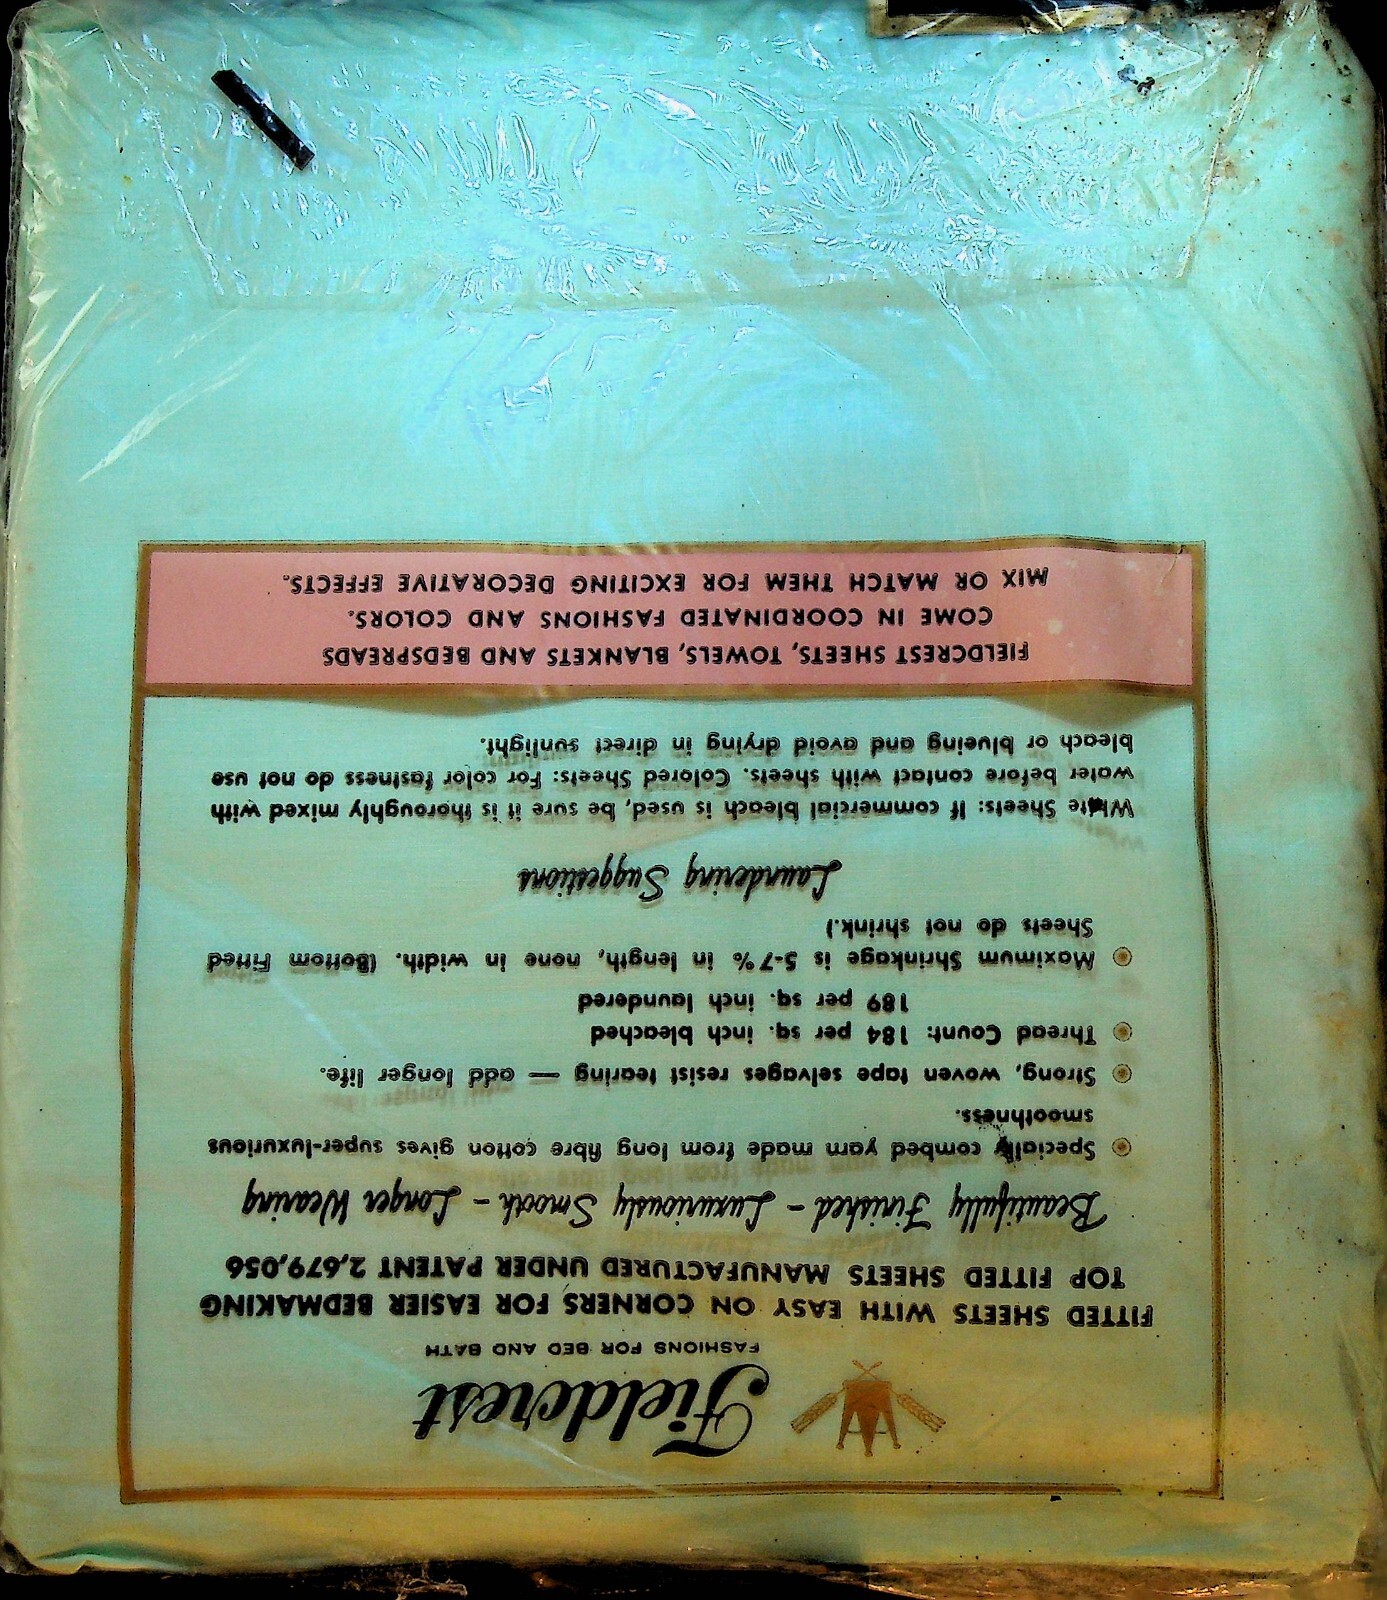 Fieldcrest
FASHIONS FOR BED AND BATH
FITTED SHEETS WITH EASY ON CORNERS FOR EASIER BEDMAKING
TOP FITTED SHEETS MANUFACTURED UNDER PATENT 2,679,056
Beautifully Finished - Luxuriously Smooth - Longer Wearing
Specially combed yarn made from long fibre cotton gives super-luxurious
smoothness.
Strong, woven tape selvages resist tearing — add longer life.
Thread Count: 184 per sq. inch bleached
189 per sq. inch laundered
Maximum Shrinkage is 5-7% in length, none in width. (Bottom Fitted
Sheets do not shrink.)
Laundering Suggestions
White Sheets: If commercial bleach is used, be sure it is thoroughly mixed with
water before contact with sheets. Colored Sheets: For color fastness do not use
bleach or blueing and avoid drying in direct sunlight.
FIELDCREST SHEETS, TOWELS, BLANKETS AND BEDSPREADS
COME IN COORDINATED FASHIONS AND COLORS.
MIX OR MATCH THEM FOR EXCITING DECORATIVE EFFECTS.